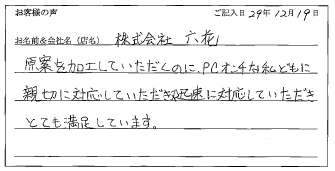 お客様の声 ご記入日 29年 12月 19日
お名前&会社名(店名) 株式会社 六花
原案を加工していただくのに、PCオンチな私どもに
親切に対応していただき迅速に対応していただき
とても満足しています。